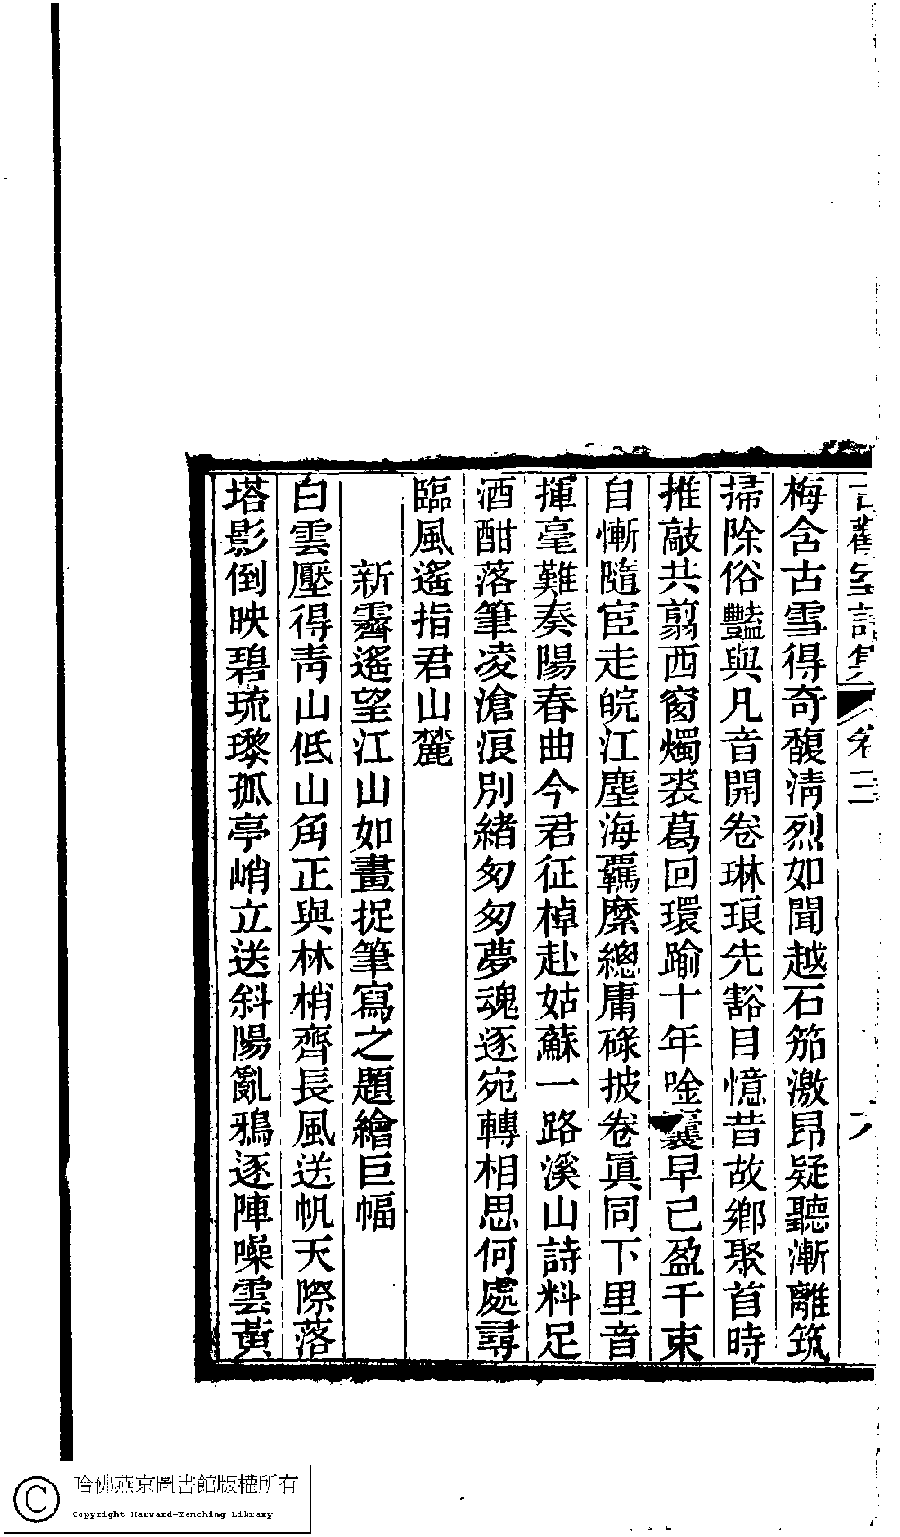 古歡室詩集 卷三 六
梅含古雪得奇馥淸烈如聞越石笳激昂疑聽漸離筑
掃除俗豔與凡音開卷琳琅先豁目憶昔故鄉聚首時
推敲共翦西窗燭裘葛回環踰十年唫囊早已盈千束
自慚隨宦走皖江塵海羈縻總庸碌披卷眞同下里音
揮毫難奏陽春曲今君征棹赴姑蘇一路溪山詩料足
酒酣落筆凌滄浪別緒匆匆夢魂逐宛轉相思何處尋
臨風遙指君山麓
新霽遙望江山如畫捉筆寫之題繪巨幅
白雲壓得靑山低山角正與林梢齊長風送帆天際落
塔影倒映碧琉瓈孤亭峭立送斜陽亂鴉逐陣噪雲黃
哈佛燕京圖書館版權所有
Copyright Harvard-Yenching Library